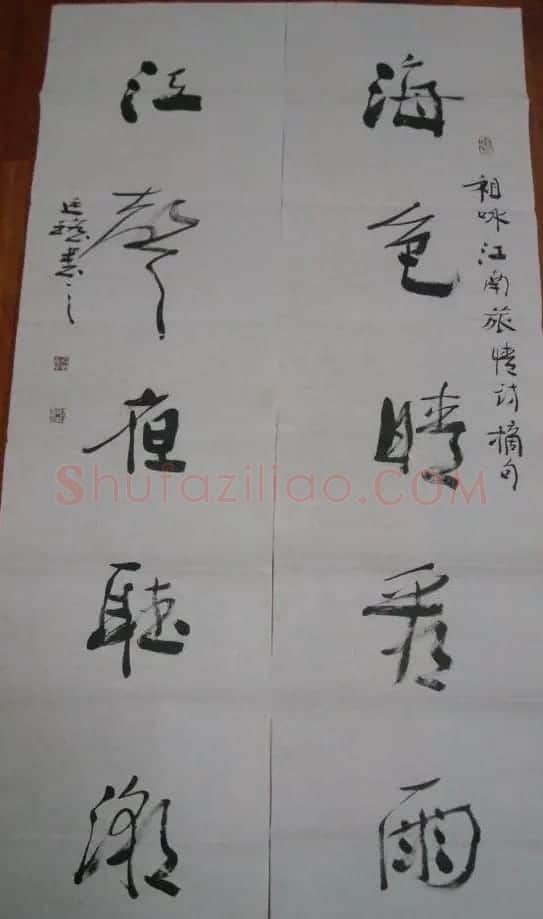 祖咏江南旅情诗摘句
海色晴看雨
江声夜聽潮
书之
Shufaziliao.COM